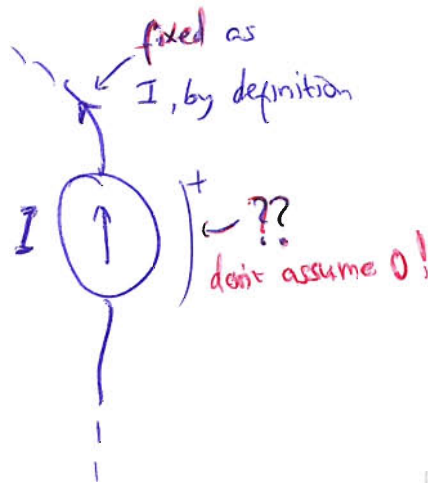 fixed as
I, by definition
I
+
??
don't assume 0!